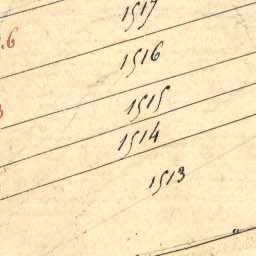 1517
.6
1516
1515
1514
1513